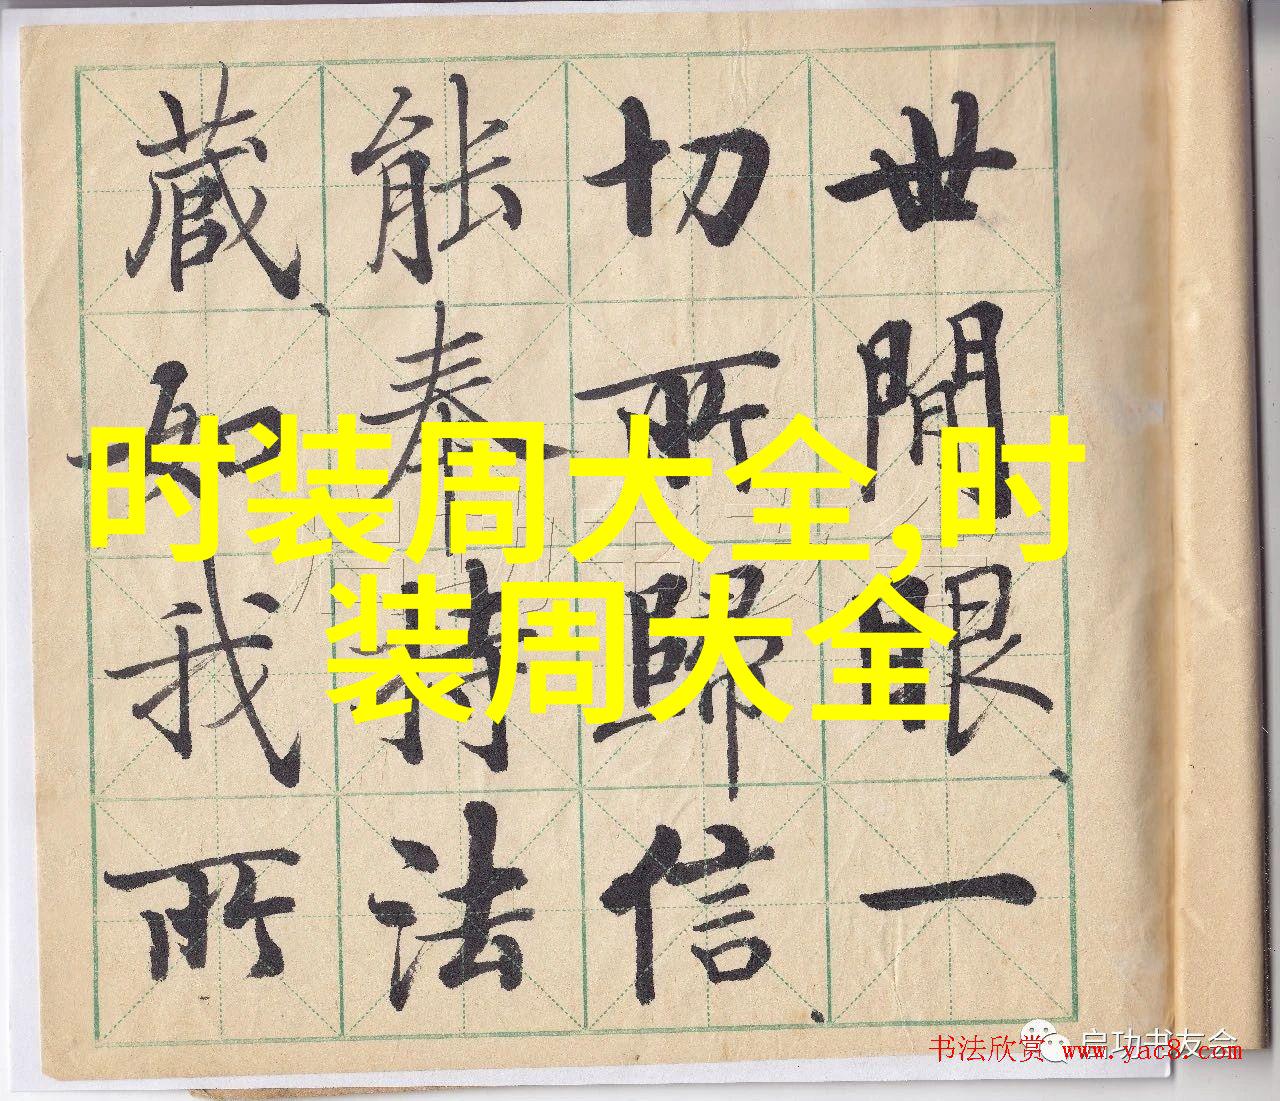 世間眼一
切所歸信
能奉持法
藏如我所
时装周大全,时
装周大全
书法欣赏 www.yac8.com
启功书友会